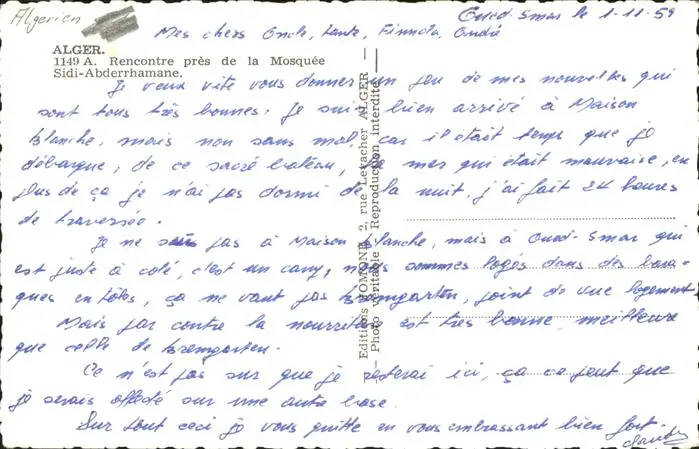 Algerien
Oued-Smar le 1-11-59
Mes chers Oncle, Tante, André
ALGER.
1149 A. Rencontre près de la Mosquée
Sidi-Abderrhamane.
Je veux vite vous donner un peu de mes nouvelles qui
sont tous très bonnes: Je suis bien arrivé à Maison
Blanche, mais non sans mal, car il était temps que je
débarque, de ce sacré bateau, mer qui était mauvaise, en
plus de ça je n'ai pas dormi de la nuit, j'ai fait 24 heures
de traversée.
Je ne suis pas à Maison Blanche, mais à Oued-Smar qui
est juste à coté, c'est un camp, nous sommes logés dans des bara-
ques en tôles, ça ne vaut pas Bremgarten, joint de vue logement
Mais par contre la nourriture est très bonne meilleure
que celle de Bremgarten.
Ce n'est pas sur que je resterai ici, ça ce peut que
je serais affecté sur une autre base.
Sur tout ceci je vous quitte en vous embrassant bien fort.
Claude
Editions 2, rue Lestacher ALGER -
- Photo véritable - Reproduction interdite -